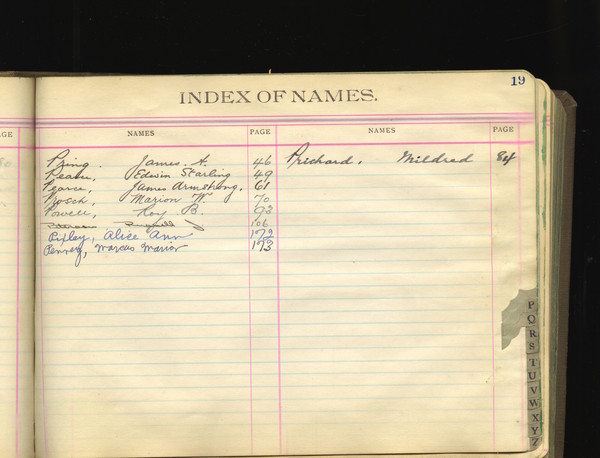 19
INDEX OF NAMES.
AGE NAMES PAGE NAMES PAGE
Pring. James. A. 46 Prichard, Mildred 84
Edwin Starling 49
Pearce, James Armstrong, 61
Posch, Marion W. 70
Powell, Roy B. 93
106
Pipley, Alice Ann 172
Penney, Marcus Marion 173
P
Q
R
S
T
U
V
W
X
Y
Z